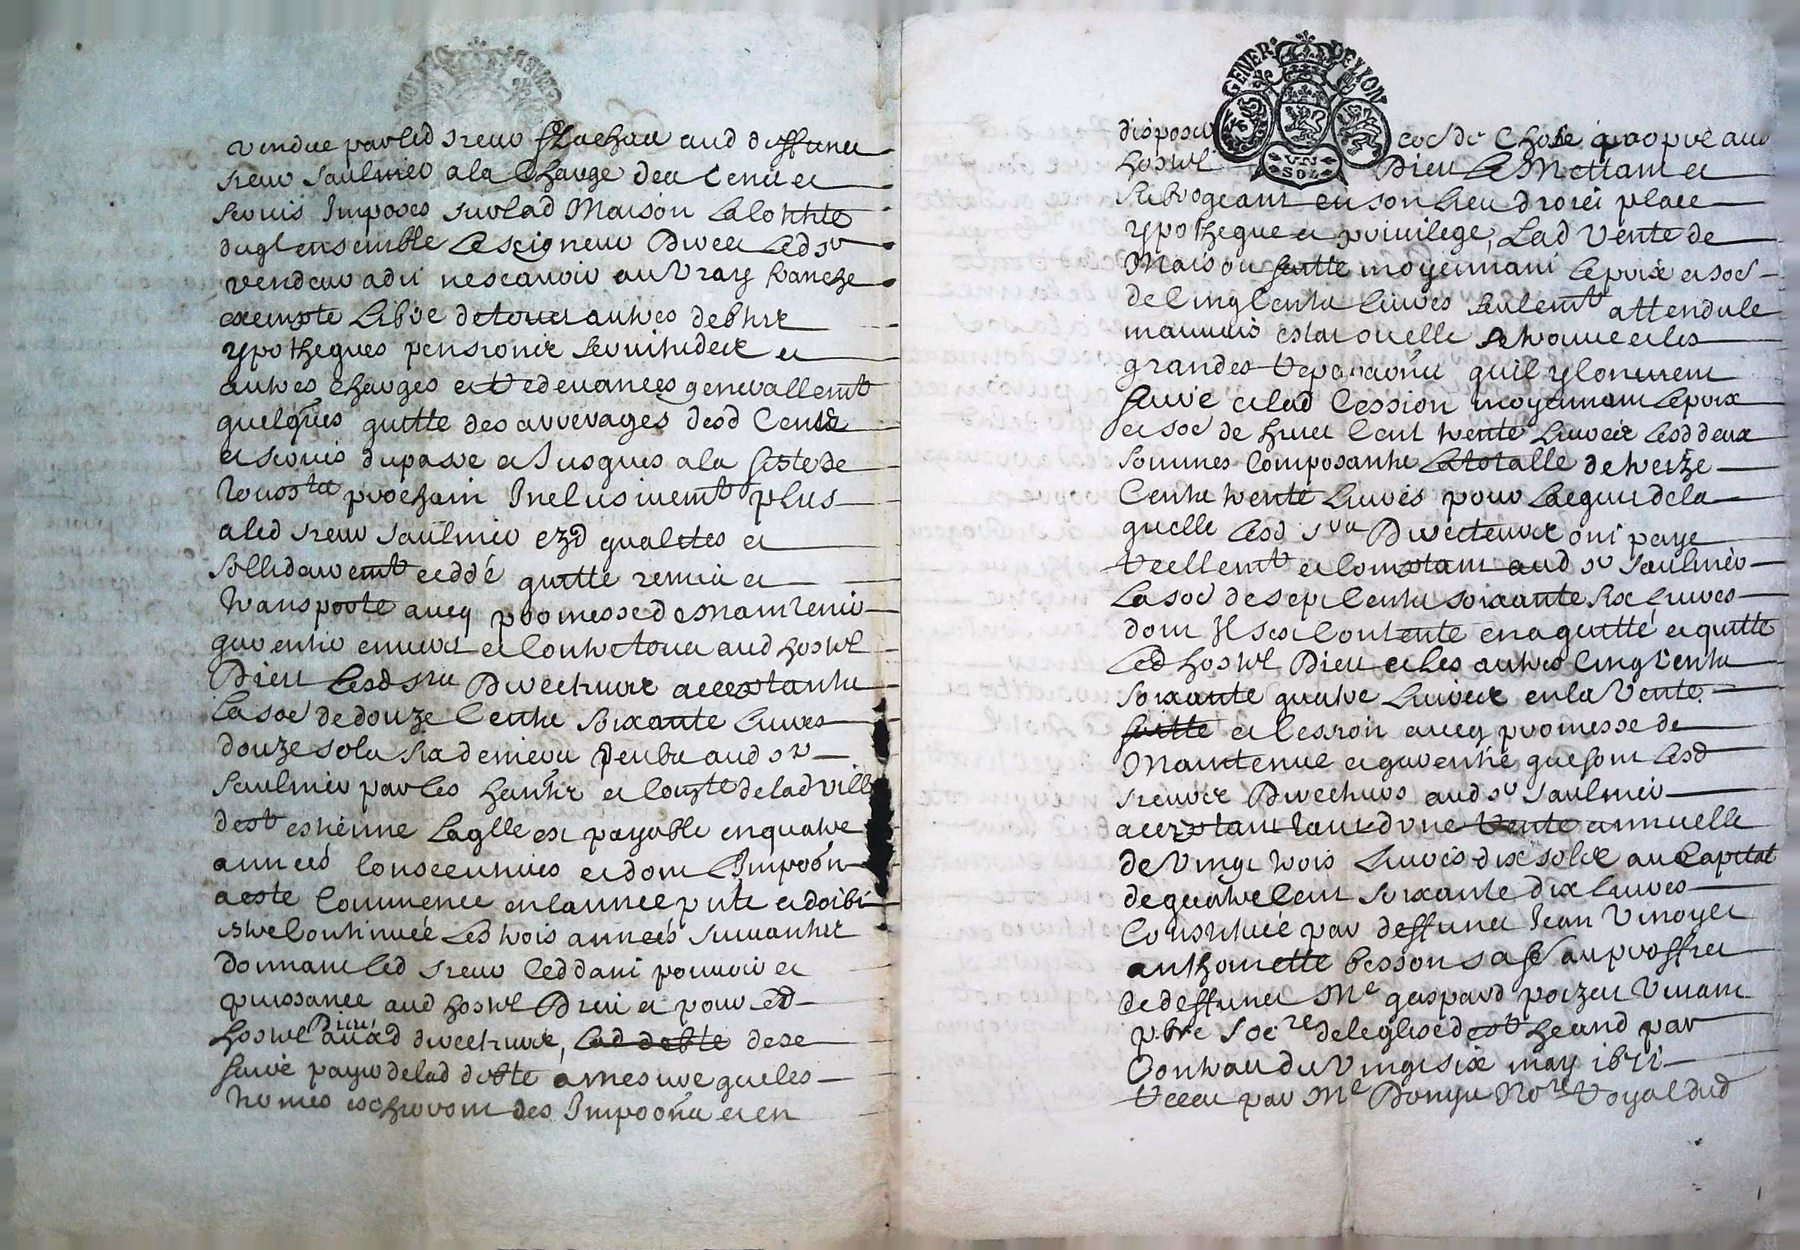 vendue par led sieur flachat aud deffunct
sieur saulnier a la Charge des Cens et
servis Imposés sur lad Maison La
ensemble Le seigneur Direct Led sr
vendeur a dit ne scavoir au vray franche
exempte Libre de tous autres debtes
ypotheques pensions et
autres charges et Redevances generallemt
quelqs quitte des arrerages desd Cens
et servis du passé et Jusques a la feste de
Touss prochain Inclusivemt plus
a led sieur saulnier ezd qualites et
sollidairemt ceddé quitte remis et
transporté avecq promesse de maintenir
garentir envers et Contre tous aud hostel
Dieu Lesd srs Directeurs acceptants
La soe de douze Cents soixante Livres
douze sols six deniers deubs aud sr
saulnier par les de lad ville
de st estienne Laqlle est payable en quatre
années Consecutives et dont L'Impoon
a esté Commencée en lannée pnte et doibt
estre Continuée Les trois années suivantes
donnant led sieur Ceddant pouvoir et
puissance aud hostel Dieu et pour led
hostel Dieu ausd directeurs, Lad debte de se
faire payer de lad debte a mesure que les
termes escherront des Impoons et en
disposer coe de Chose propre aud
hostel Dieu Le Mettant et
subrogeant en son Lieu droict place
ypotheque et privilege, Lad Vente de
Maison faitte moyennant Le prix et soe
de Cinq Cents Livres seulemt attendu le
mauvais estat ou elle se trouve et les
grandes reparaons qu'il y Convient
faire et lad Cession moyennant Le prix
et soe de huict Cent trente Livres Lesd deux
sommes Composants La totalle de treize
Cents trente Livres pour Laquelle de la
quelle Lesd srs Directeurs ont payé
reellemt et Comptant aud sr saulnier
La soe de sept Cents soixante six Livres
dont Il s'est Contenté en a quitté et quitte
Led hostel Dieu et Les autres Cinq Cents
soixante quatre Livres en la Vente
faitte et Cession avecq promesse de
Maintenue et garentie que font Lesd
sieurs Directeurs aud sr saulnier
acceptant d'une Rente annuelle
de vingt trois Livres dix sols au Capital
de quatre Cent soixante dix Livres
Constituée par deffunct Jean
anthoinette besson sa fe au proffict
de deffunct Me gaspard poizat Vivant
pbre Socre de leglise de st heand par
Contract du vingt six may 1671
Receu par Me Nore Royal dud
GENER DE LYON
UN
SOL